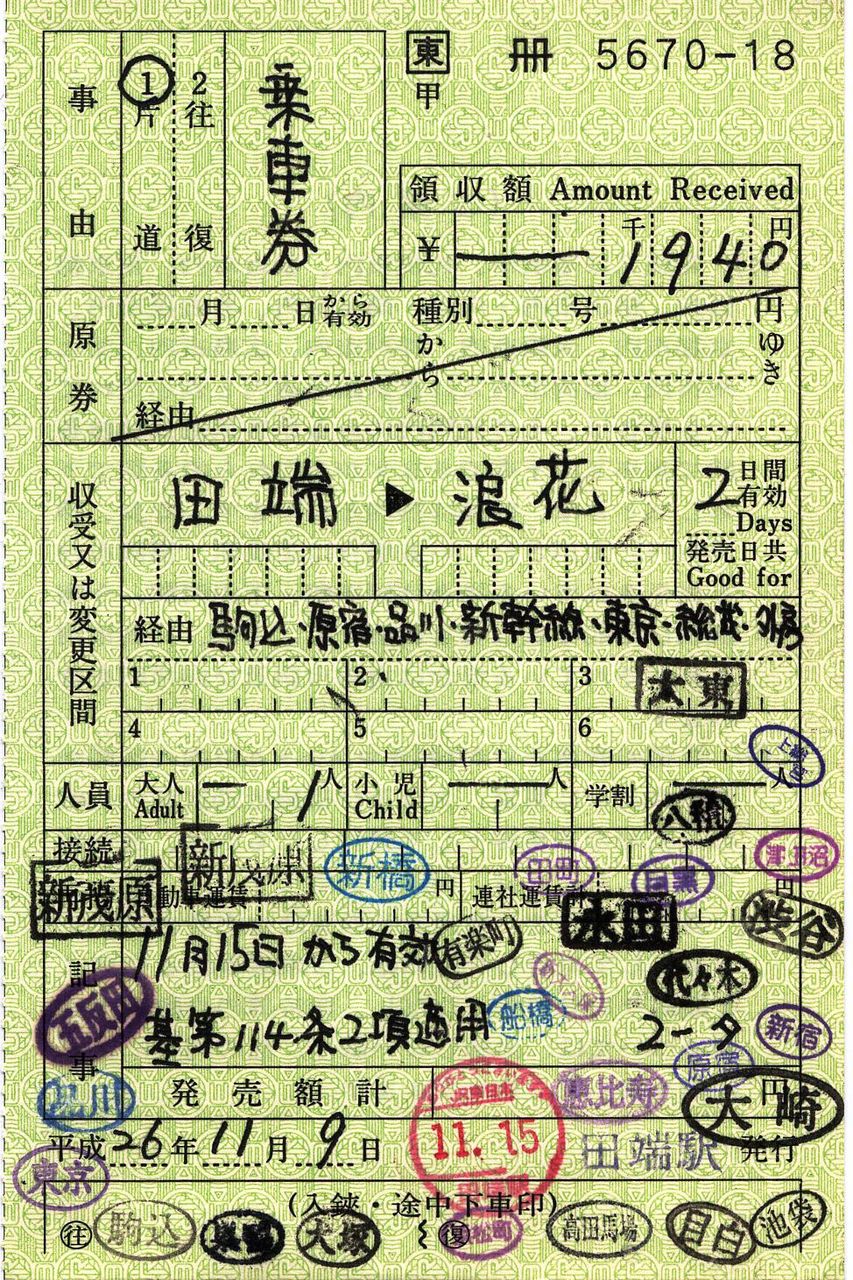 東 冊 5670-18
甲
事由 1片道 2往復 乗車券
領収額 Amount Received
¥ 千 円
1940
原券 月 日から有効 種別 号 円
から ゆき
経由
収受又は変更区間
田端 ▶ 浪花
2日間有効
Days
発売日共
Good for
経由 駒込・原宿・品川・新幹線・東京・総武・外房
1 2 3 大東
4 5 6
上総一ノ宮
人員 大人 Adult 1人 小児 Child 人 学割 人
八積
接続 新茂原 新橋 田町 目黒 津田沼
新茂原 自動車運賃 円 連社運賃計 円
永田 渋谷
記事
11月15日から有効 有楽町
代々木
五反田 船橋 新宿
基第114条2項適用 2-タ
原宿
品川 発売額計 恵比寿 円
大崎
平成26年11月9日 JR東日本 11.15 田端駅発行
東京
(入鋏・途中下車印)
往 駒込 巣鴨 大塚 復 浜松町 高田馬場 目白 池袋